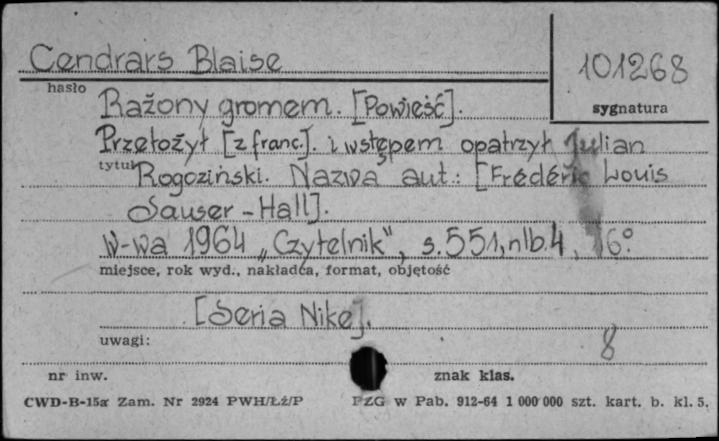 Cendrars Blaise
101268
hasło
sygnatura
Rażony gromem. [Powieść].
Przełożył [z franc.]. i wstępem opatrzył Julian
tytuł
Rogoziński. Nazwa aut.: [Frédéric Louis
Sauser-Hall].
W-wa 1964 „Czytelnik", s. 551, nlb. 4, 16°
miejsce, rok wyd., nakładca, format, objętość
[Seria Nike].
uwagi:
8
nr inw.
znak klas.
CWD-B-15a Zam. Nr 2924 PWH/Łż/P
PZG w Pab. 912-64 1 000 000 szt. kart. b. kl. 5.